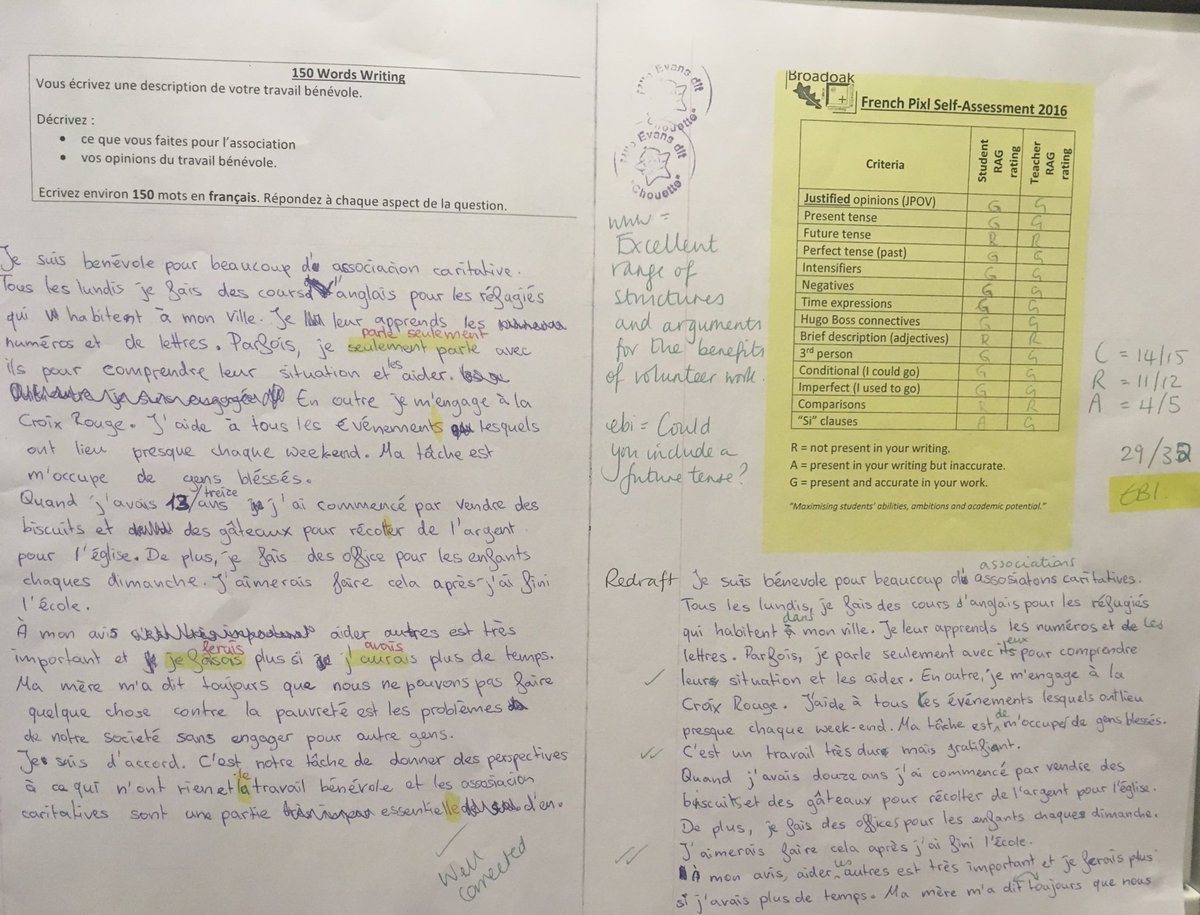 150 Words Writing
Vous écrivez une description de votre travail bénévole.
Décrivez :
• ce que vous faites pour l'association
• vos opinions du travail bénévole.
Ecrivez environ 150 mots en français. Répondez à chaque aspect de la question.
Je suis benévole pour beaucoup de associacion caritative.
Tous les lundis je fais des cours d'anglais pour les réfugiés
qui habitent à mon ville. Je leur apprends les
parle seulement
numéros et de lettres. Parfois, je seulement parle avec
ils pour comprendre leur situation et les aider.
En outre je m'engage à la
Croix Rouge. J'aide à tous les événements lesquels
ont lieu presque chaque weekend. Ma tâche est
m'occupe de gens bléssés.
Quand j'avais 13/treize ans j'ai commencé par vendre des
biscuits et des gâteaux pour récolter de l'argent
pour l'église. De plus, je fais des office pour les enfants
chaques dimanche. J'aimerais faire cela après j'ai fini
l'école.
À mon avis aider autres est très
ferais avais
important et je faisais plus si j'aurais plus de temps.
Ma mère m'a dit toujours que nous ne pouvons pas faire
quelque chose contre la pauvreté est les problèmes
de notre société sans engager pour autre gens.
Je suis d'accord. C'est notre tâche de donner des perspectives
à ce qui n'ont rien et le travail bénévole et les associacion
caritatives sont une partie essentielle d'en.
Well corrected
Evans dit
"Chouette"
Evans dit
"Chouette"
www =
Excellent
range of
structures
and arguments
for the benefits
of volunteer work.
ebi = Could
you include a
future tense?
Broadoak
French Pixl Self-Assessment 2016
Criteria Student RAG rating Teacher RAG rating
Justified opinions (JPOV) G G
Present tense G G
Future tense R R
Perfect tense (past) G G
Intensifiers G G
Negatives G G
Time expressions G G
Hugo Boss connectives G G
Brief description (adjectives) R R
3rd person G G
Conditional (I could go) G G
Imperfect (I used to go) G G
Comparisons R R
"Si" clauses A G
R = not present in your writing.
A = present in your writing but inaccurate.
G = present and accurate in your work.
"Maximising students' abilities, ambitions and academic potential."
C = 14/15
R = 11/12
A = 4/5
29/32
EBI.
associations
Redraft Je suis bénevole pour beaucoup d'assosiatons caritatives.
Tous les lundis, je fais des cours d'anglais pour les réfugiés
qui habitent dans mon ville. Je leur apprends les numéros et les
lettres. Parfois, je parle seulement avec eux pour comprendre
leur situation et les aider. En outre, je m'engage à la
Croix Rouge. J'aide à tous les événements lesquels ont lieu
presque chaque week-end. Ma tâche est de m'occuper de gens blessés.
C'est un travail très dur mais gratifiant.
Quand j'avais douze ans j'ai commencé par vendre des
biscuits et des gâteaux pour récolter de l'argent pour l'église.
De plus, je fais des offices pour les enfants chaques dimanche.
J'aimerais faire cela après j'ai fini l'école.
À mon avis, aider les autres est très important et je ferais plus
si j'avais plus de temps. Ma mère m'a dit toujours que nous